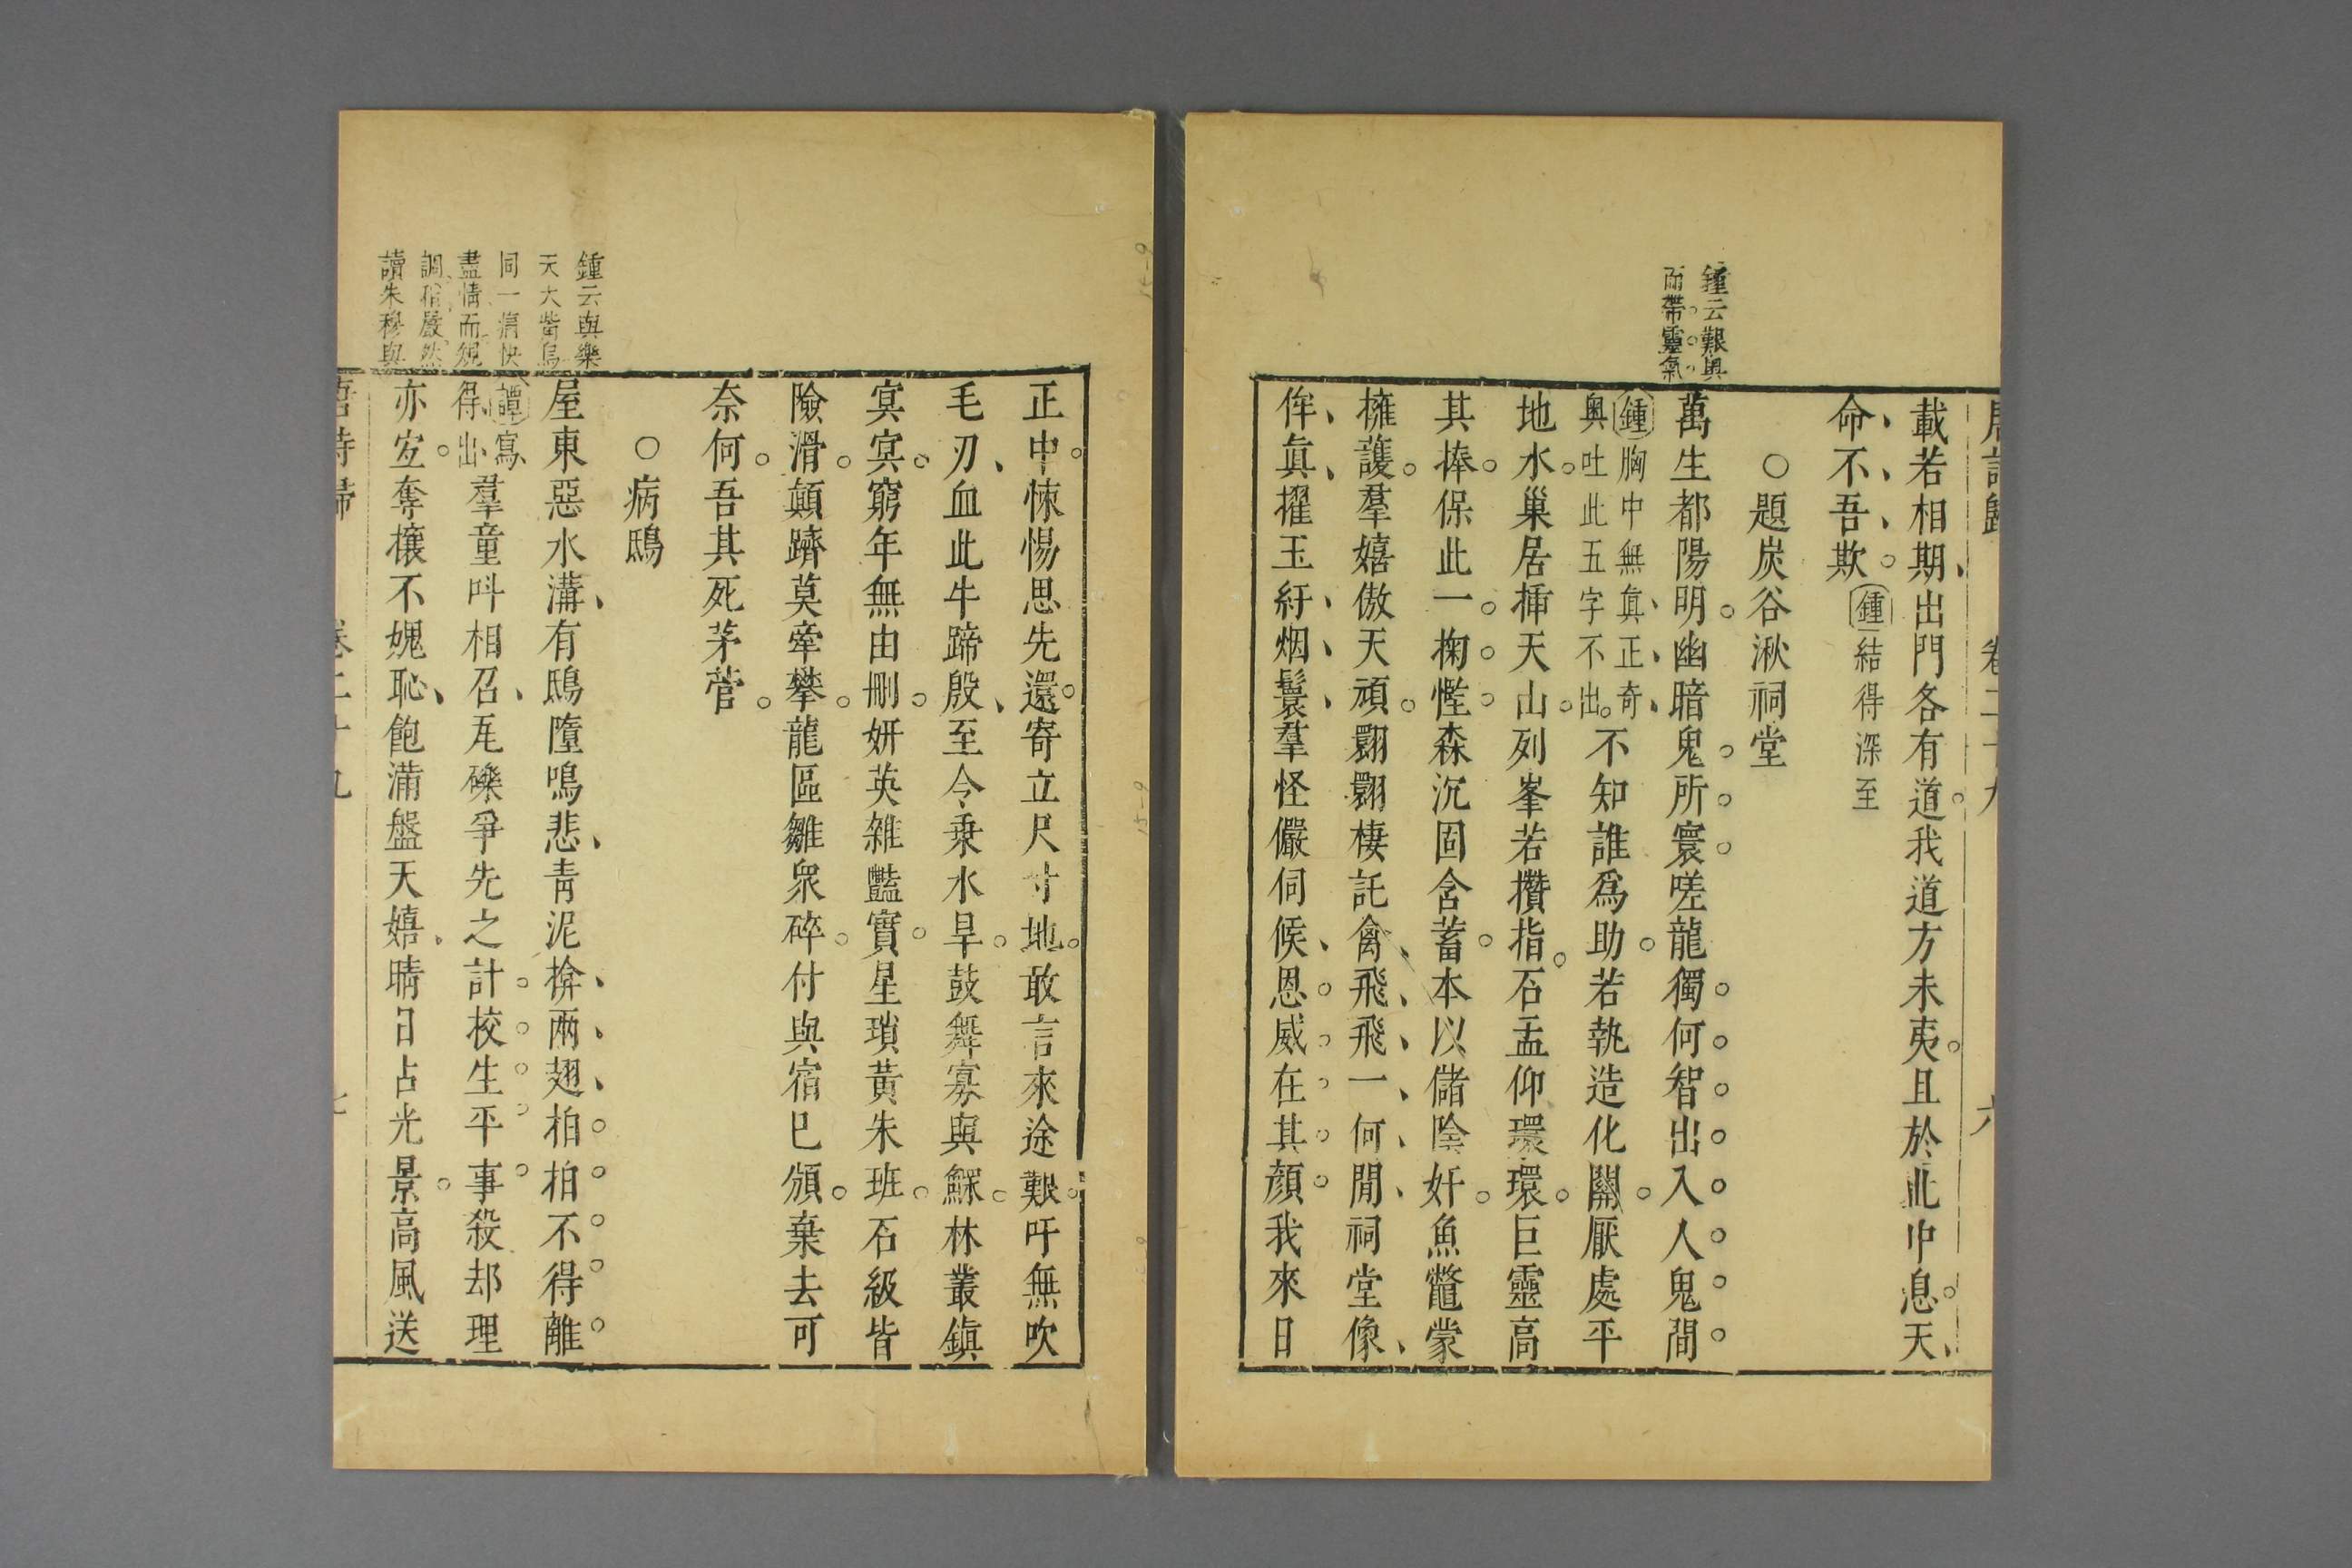 唐詩歸 卷二十九 六
載若相期出門各有道我道方未夷且於此中息天
命不吾欺鍾結得深至
○題炭谷湫祠堂
鍾云艱奧
而帶靈氣
萬生都陽明幽暗鬼所寰嗟龍獨何智出入人鬼間
鍾胸中無眞正奇
奧吐此五字不出
不知誰爲助若執造化關厭處平
地水巢居揷天山列峯若攢指石盂仰環環巨靈高
其捧保此一掬慳森沉固含蓄本以儲陰奸魚鼈蒙
擁護羣嬉傲天頑翾翾棲託禽飛飛一何閒祠堂像
侔眞擢玉紆烟鬟羣怪儼伺候恩威在其顔我來日
正中悚惕思先還寄立尺寸地敢言來途艱吁無吹
毛刃血此牛蹄殷至今乘水旱鼓舞寡與鰥林叢鎭
冥冥窮年無由刪妍英雜豔實星瑣黃朱班石級皆
險滑顛躋莫牽攀龍區雛衆碎付與宿已頒棄去可
奈何吾其死茅菅
○病鴟
鍾云與樂
天大觜烏
同一痛快
盡情而規
調稍嚴然
讀朱穆與
屋東惡水溝有鴟墮鳴悲青泥揜兩翅拍拍不得離
譚寫
得出
羣童叫相召瓦礫爭先之計校生平事殺却理
亦宜奪攘不媿恥飽滿盤天嬉晴日占光景高風送
唐詩歸 卷二十九 七